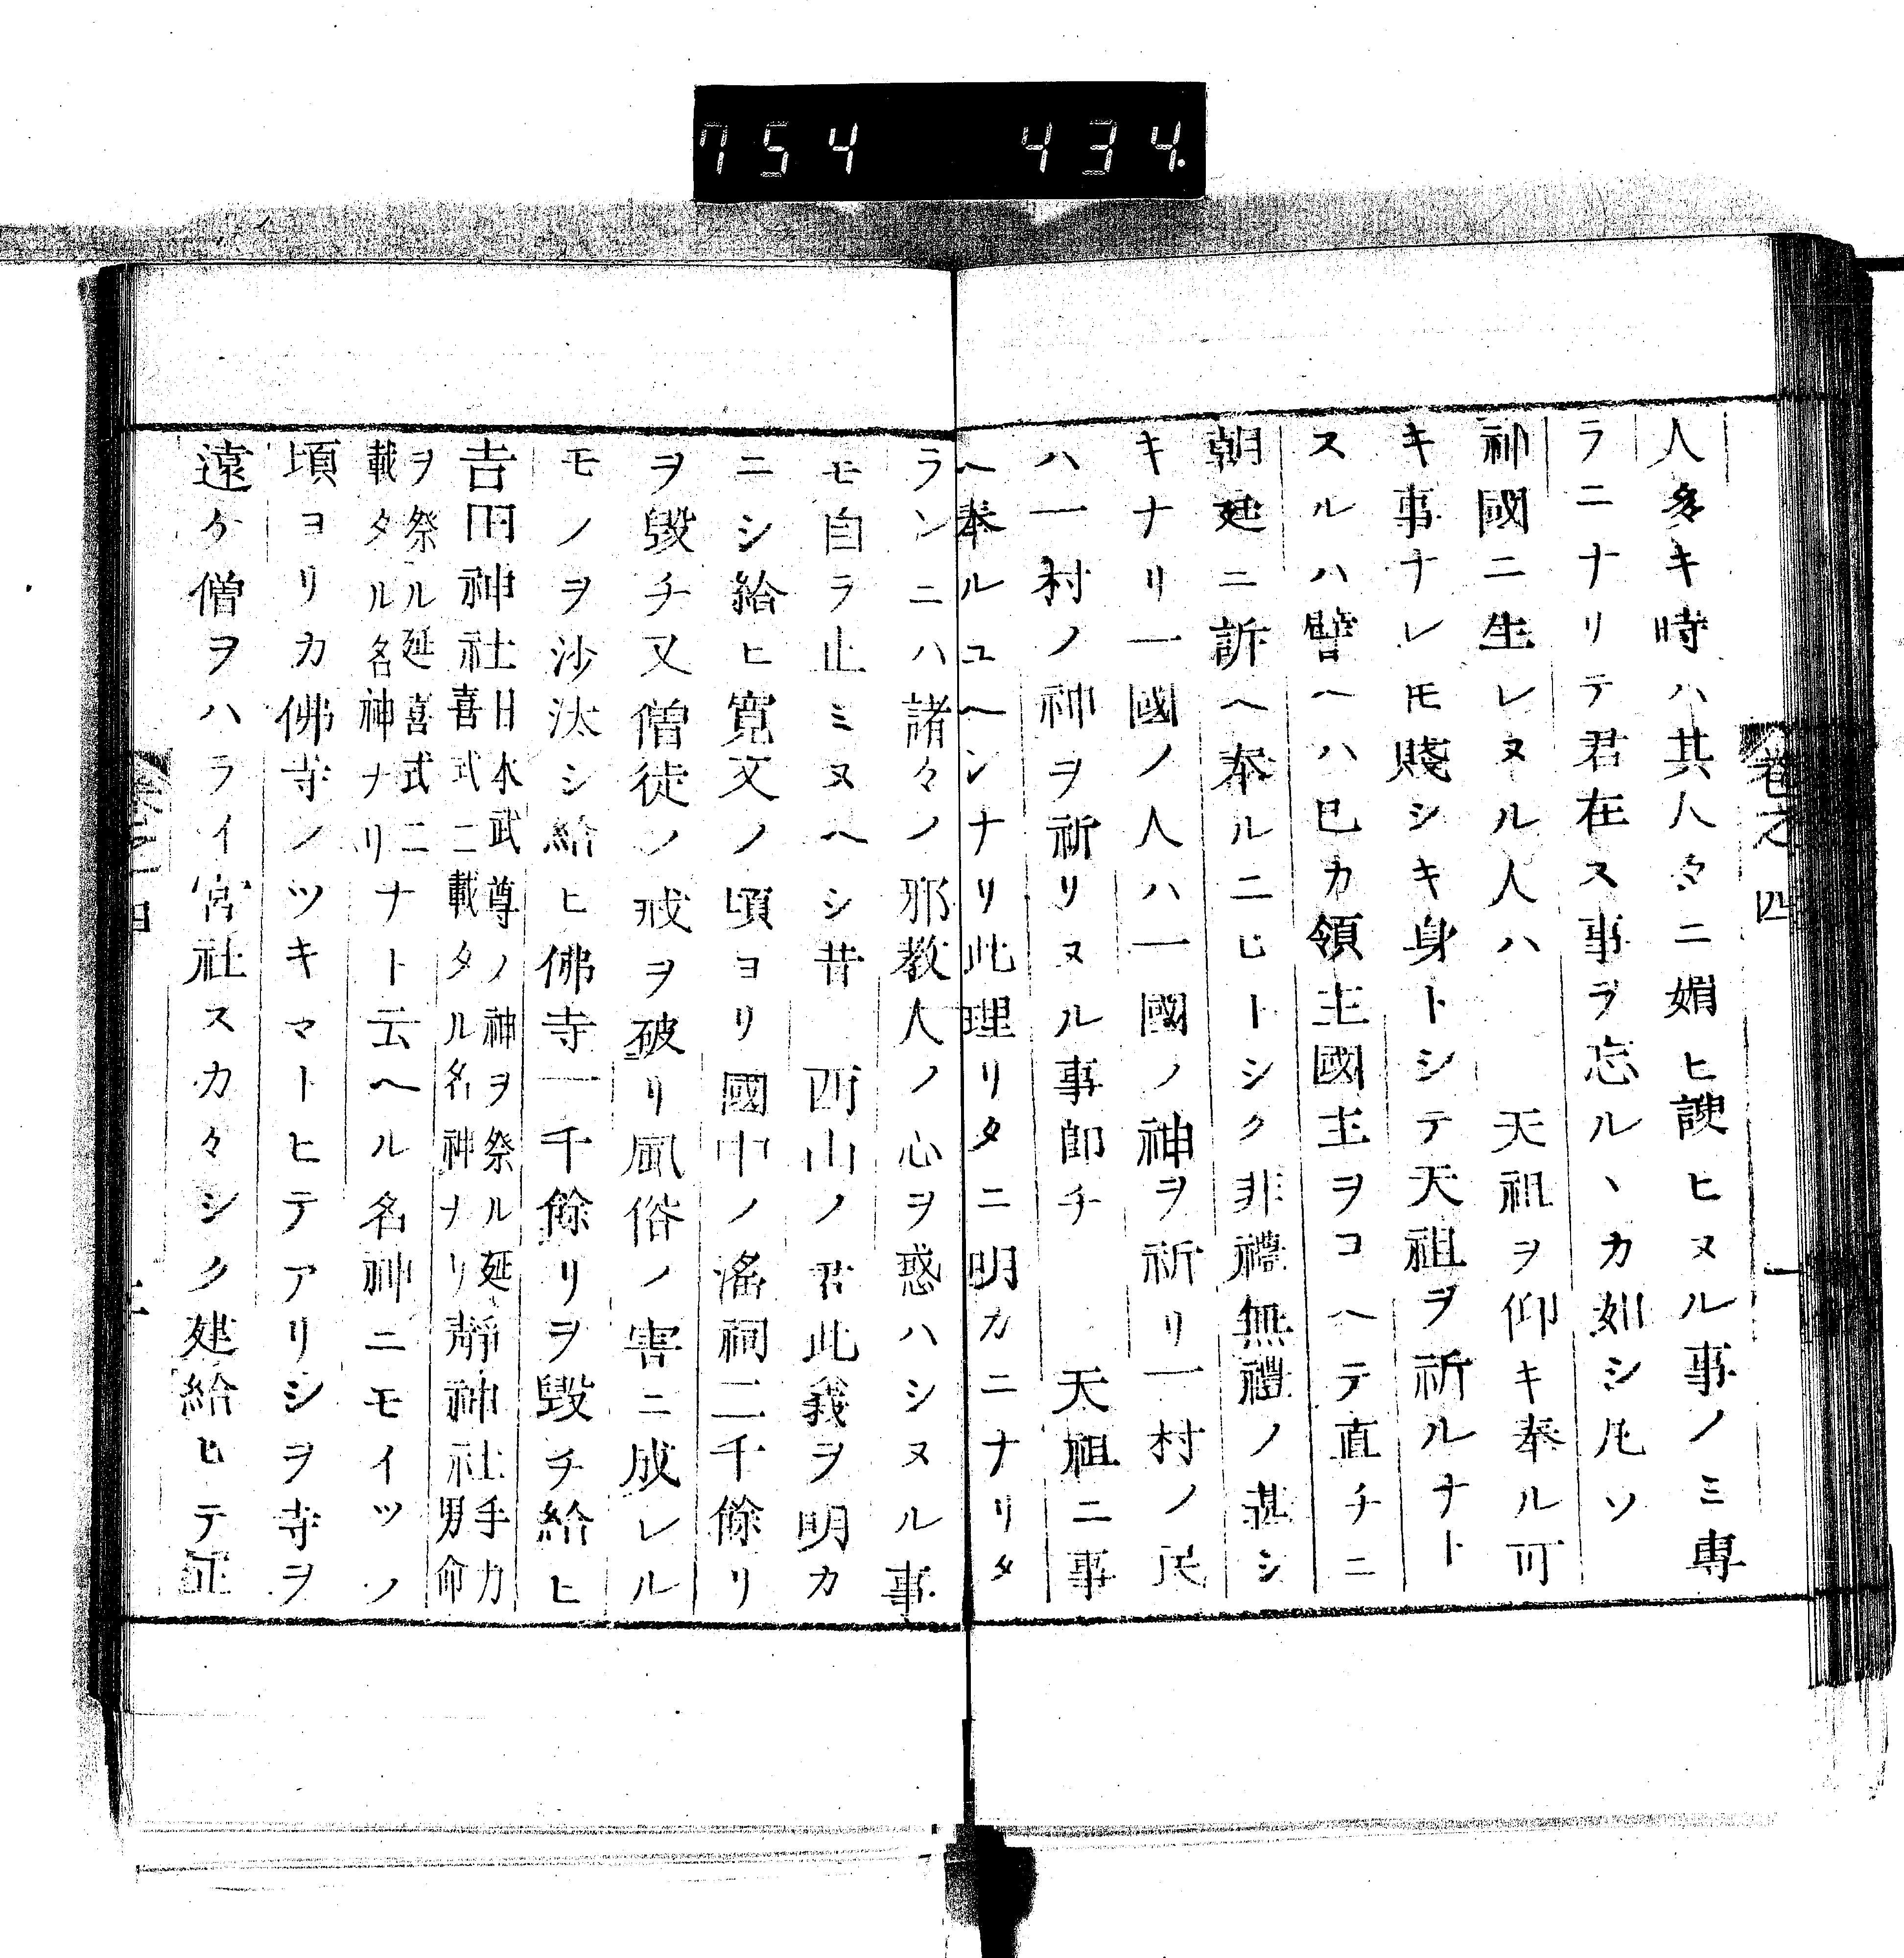 754 434.
卷之四 一
人多キ時ハ其人々ニ媚ヒ諛ヒヌル事ノミ專
ラニナリテ君在ス事ヲ忘ルヽカ如シ凡ソ
神國ニ生レヌル人ハ 天祖ヲ仰キ奉ル可
キ事ナレモ賤シキ身トシテ天祖ヲ祈ルナト
スルハ譬ヘハ已カ領主國主ヲコヘテ直チニ
朝廷ニ訴ヘ奉ルニヒトシク非禮無禮ノ甚シ
キナリ一國ノ人ハ一國ノ神ヲ祈リ一村ノ民
ハ一村ノ神ヲ祈リヌル事卽チ 天祖ニ事
ヘ奉ルユヘンナリ此理リタニ明カニナリタ
ランニハ諸々ノ邪教人ノ心ヲ惑ハシヌル事
モ自ラ止ミヌヘシ昔 西山ノ君此義ヲ明カ
ニシ給ヒ寬文ノ頃ヨリ國中ノ滛祠二千餘リ
ヲ毀チ又僧徒ノ戒ヲ破リ風俗ノ害ニ成レル
モノヲ沙汰シ給ヒ佛寺一千餘リヲ毀チ給ヒ
吉田神社日本武尊ノ神ヲ祭ル延喜式ニ載タル名神ナリ靜神社手力男命
ヲ祭ル延喜式ニ載タル名神ナリナト云ヘル名神ニモイツノ
頃ヨリカ佛寺ノツキマトヒテアリシヲ寺ヲ
遠ケ僧ヲハライ宮社スカ々シク建給ヒテ正